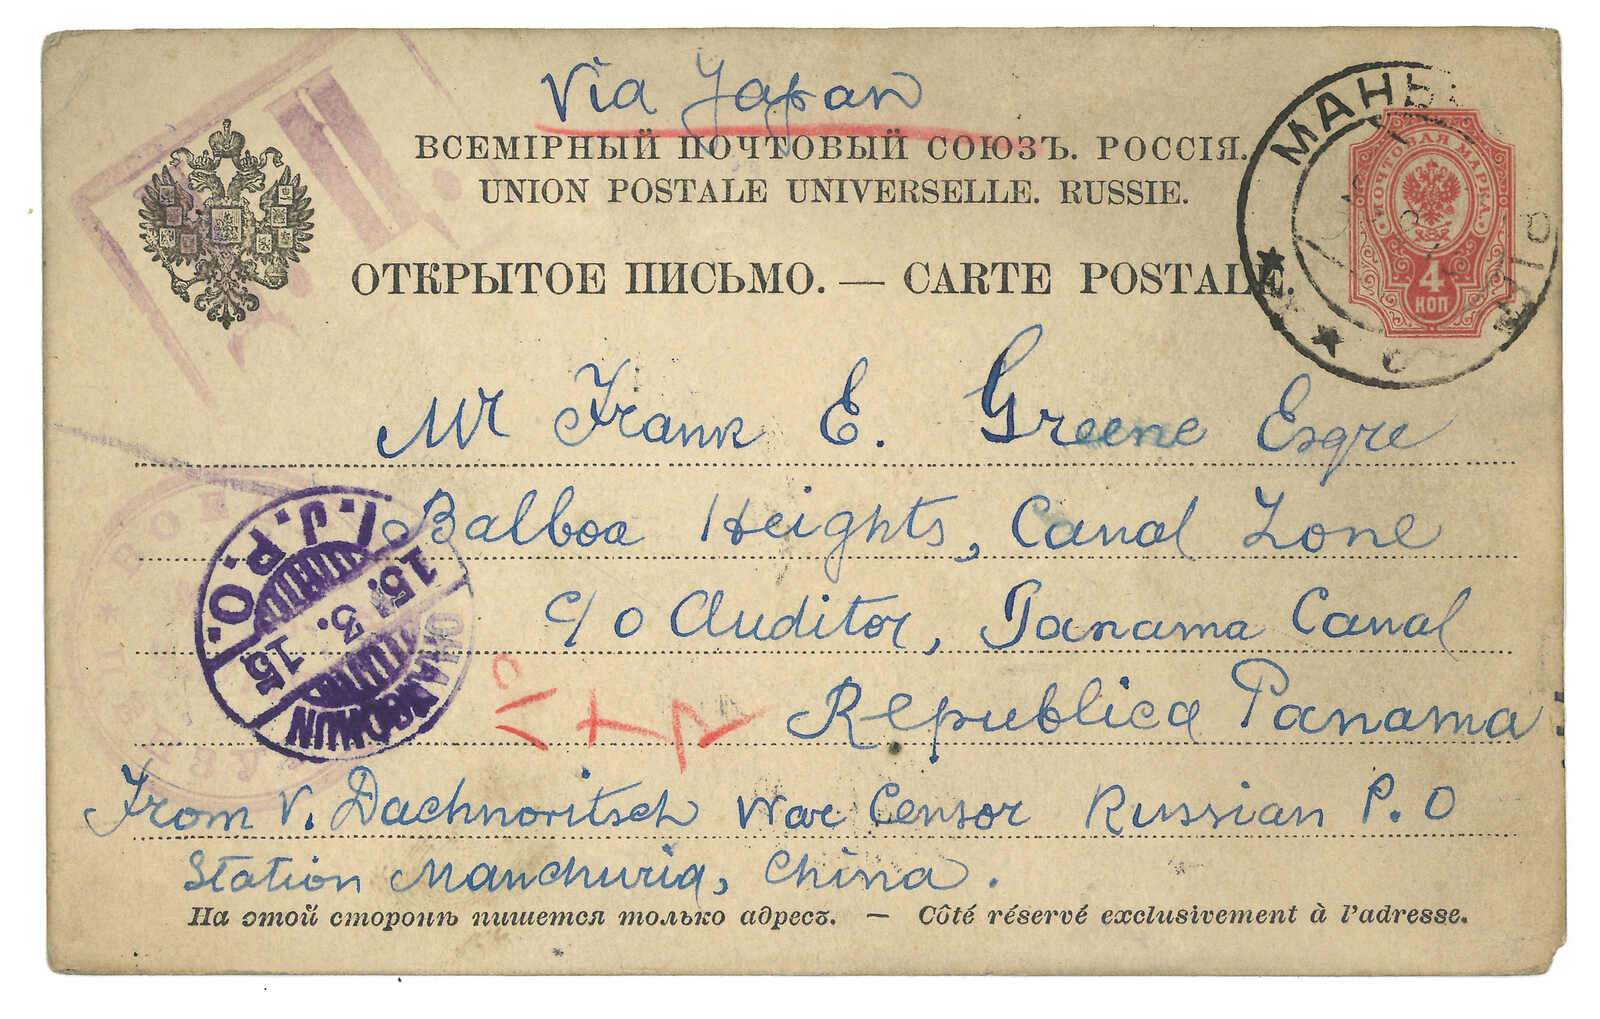 Via Japan
ВСЕМІРНЫЙ ПОЧТОВЫЙ СОЮЗЪ. РОССІЯ.
UNION POSTALE UNIVERSELLE. RUSSIE.
ОТКРЫТОЕ ПИСЬМО. — CARTE POSTALE.
ПОЧТОВАЯ МАРКА.
4
КОП
Mr Frank E. Greene Esqre
Balboa Heights, Canal Zone
c/o Auditor, Panama Canal
Republica Panama
I.J.P.O.
15.3.15
From V. Dachnovitsch War Censor Russian P.O
Station Manchuria, China.
На этой сторонѣ пишется только адресъ. — Côté réservé exclusivement à l'adresse.